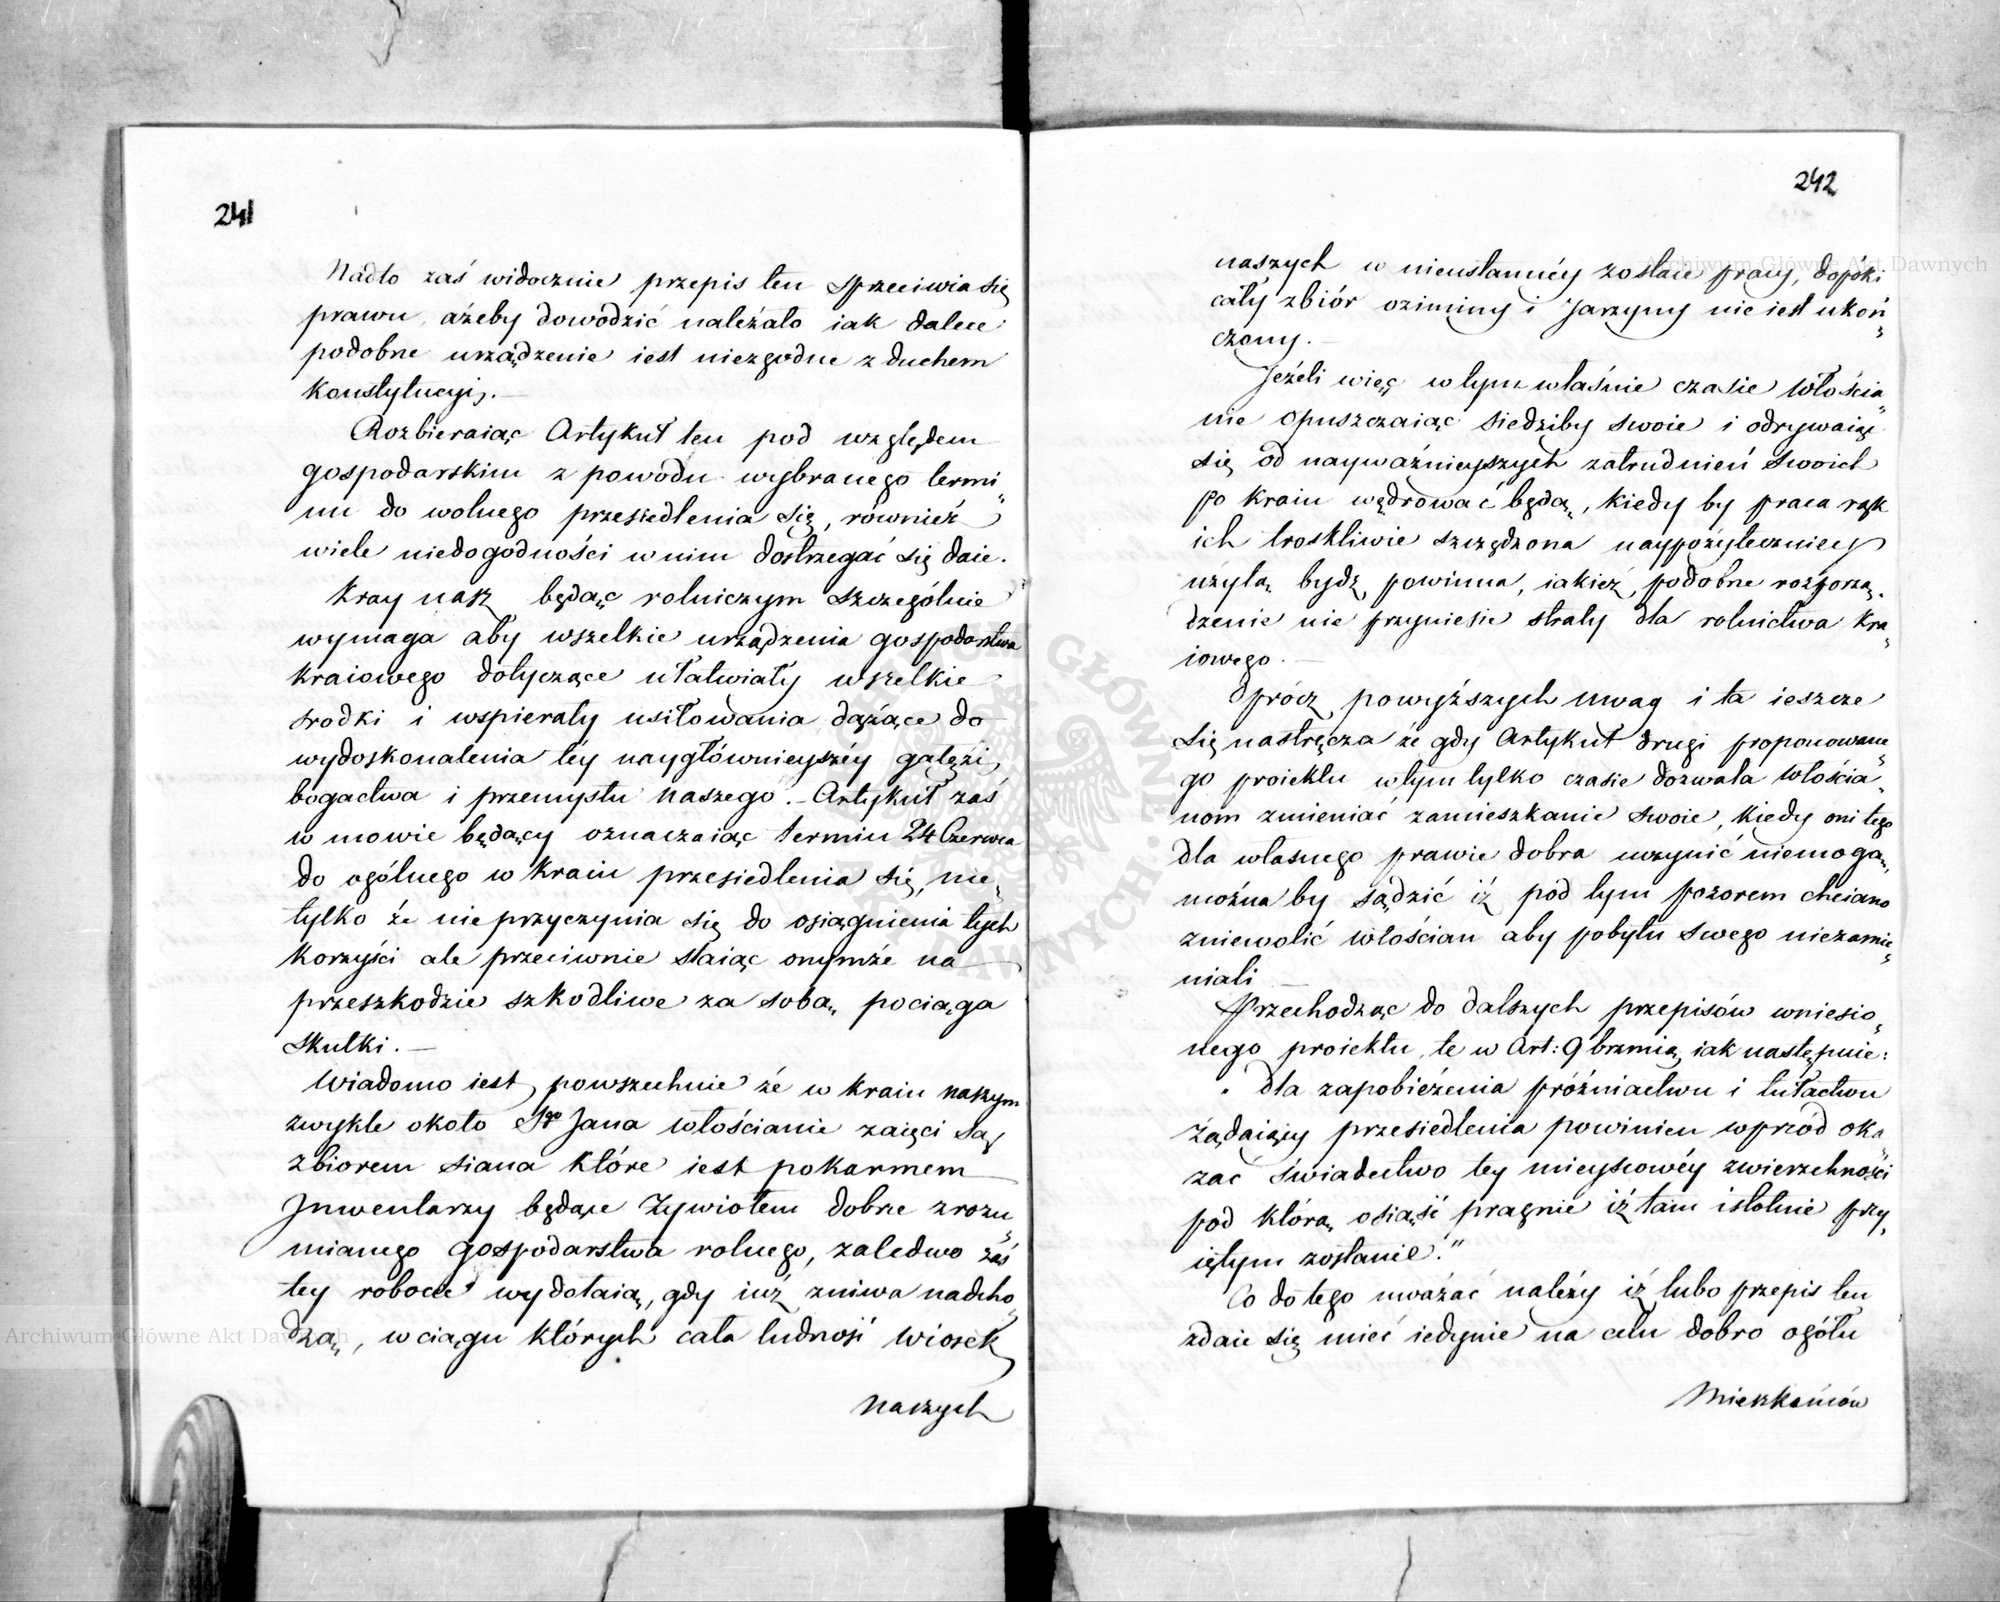 241
Nadto zaś widocznie przepis ten sprzeciwia się
prawu, ażeby dowodzić należało iak dalece
podobne urządzenie iest niezgodne z duchem
konstytucyi. —
Rozbieraiąc Artykuł ten pod względem
gospodarskim z powodu wybranego termi„
nu do wolnego przesiedlenia się, również
wiele niedogodności w nim dostrzegać się daie.
Kray nasz będąc rolniczym szczególnie
wymaga aby wszelkie urządzenia gospodarstwa
kraiowego dotyczące ułatwiały wszelkie
srodki i wspierały usiłowania dążące do
wydoskonalenia téy naygłównieyszéy gałęzi
bogactwa i przemysłu naszego. — Artykuł zaś
w mowie będący oznaczaiąc termin 24 Czerwca
do ogólnego w kraiu przesiedlenia się, nie„
tylko że nie przyczynia się do osiągnienia tych
korzyści ale przeciwnie staiąc onymże na
przeszkodzie szkodliwe za sobą pociąga
skutki. —
Wiadomo iest powszechnie że w kraiu naszym
zwykle około Sgo Jana włościanie zaięci są
zbiorem siana które iest pokarmem
Jnwentarzy będące żywiołem dobrze zrozu„
mianego gospodarstwa rolnego, zaledwo zaś
tey robocie wydołaią, gdy iuż zniwa nadcho„
dzą, w ciągu których cała ludność wiosek
naszych
242
naszych w nieustannéy zostaie pracy, dopóki
cały zbiór oziminy i Jarzyny nie iest ukoń„
czony. —
Jeżeli więc w tym właśnie czasie włościa„
nie opuszczaiąc siedziby swoie i odrywaiąc
się od nayważnieyszych zatrudnień swoich
po kraiu wędrować będą, kiedy by praca rąk
ich troskliwie szczędzona naypożyteczniey
użytą bydz powinna, iakież podobne rozporzą„
dzenie nie przyniesie straty dla rolnictwa kra„
iowego. —
Oprócz powyższych uwag i ta ieszcze
się nastręcza że gdy Artykuł drugi proponowane„
go proiektu w tym tylko czasie dozwala włościa„
nom zmieniać zamieszkanie swoie, kiedy oni tego
dla własnego prawie dobra uczynić niemogą,
można by sądzić iż pod tym pozorem chciano
zniewolić włościan aby pobytu swego niezamie„
niali —
Przechodząc do dalszych przepisów wniesio„
nego proiektu, te w Art: 9 brzmią iak następuie:
„ dla zapobieżenia próżniactwu i tułactwu
żądaiący przesiedlenia powinien wprzód oka„
zać świadectwo tey mieyscowéy zwierzchności
pod którą osiąść pragnie iż tam istotnie przy„
iętym zostanie."
Co do tego uważać należy iż lubo przepis ten
zdaie się mieć iedynie na celu dobro ogółu
Mieszkańców
Archiwum Główne Akt Dawnych
Archiwum Główne Akt Dawnych